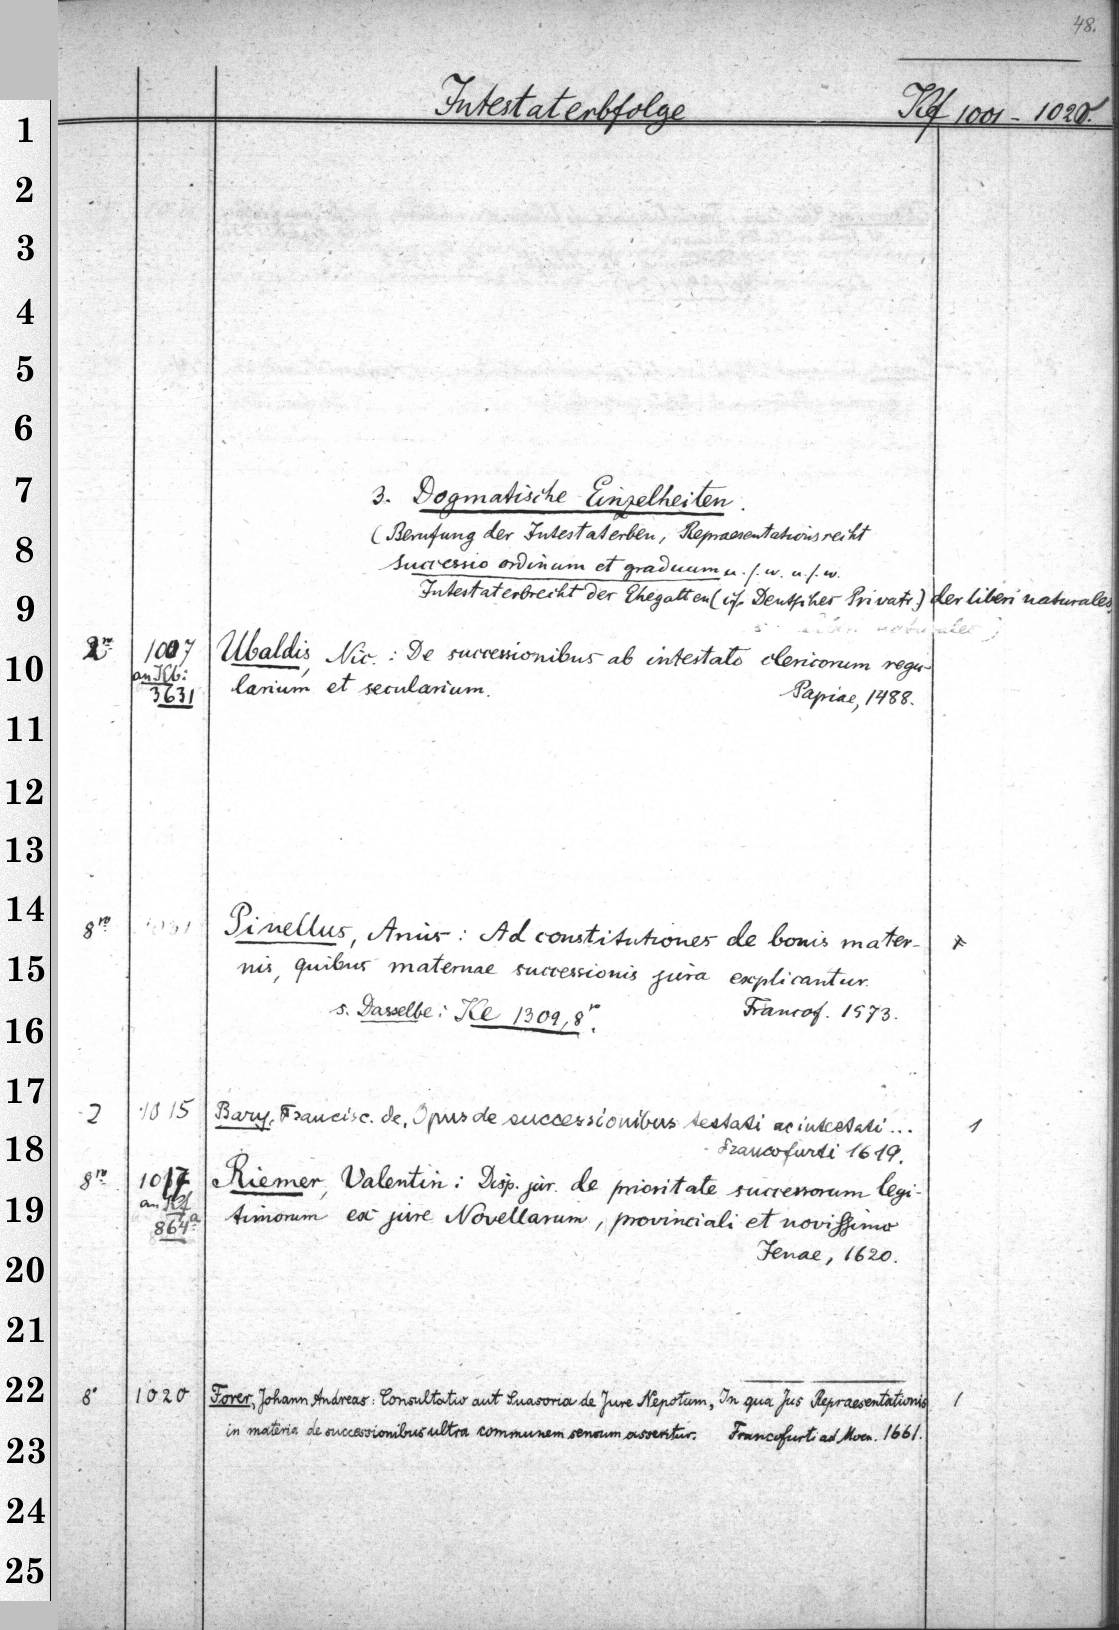 48.
Intestaterbfolge Kf 1001 - 1020.
1
2
3
4
5
6
7 3. Dogmatische Einzelheiten.
8 (Berufung der Intestaterben, Repraesentationsrecht
successio ordinum et graduum u. s. w. u. s. w.
9 Intestaterbrecht der Ehegatten (cf. Deutsches Privatr.) der liberi naturales
2ro 1007 Ubaldis, Nic.: De successionibus ab intestato clericorum regu-
10 an Kb: 3631 larium et secularium. Papiae, 1488.
11
12
13
14 8ro Pinellus, Arius: Ad constitutiones de bonis mater-
15 nis, quibus maternae successionis jura explicantur.
16 s. Dasselbe: Ke 1309, 8ro. Francof. 1573.
17 2 1015 Bary, Francisc. de, Opus de successionibus testati ac intestati ... 1
18 Francofurti 1619.
8ro 1017 Riemer, Valentin: Disp. jur. de prioritate successorum legi-
19 an Kf 864a timorum ex jure Novellarum, provinciali et novissimo
20 Jenae, 1620.
21
22 8° 1020 Forer, Johann Andreas: Consultatio aut Suasoria de Jure Nepotum, In qua Jus Repraesentationis 1
23 in materia de successionibus ultra communem sensum asseritur. Francofurti ad Moen. 1661.
24
25